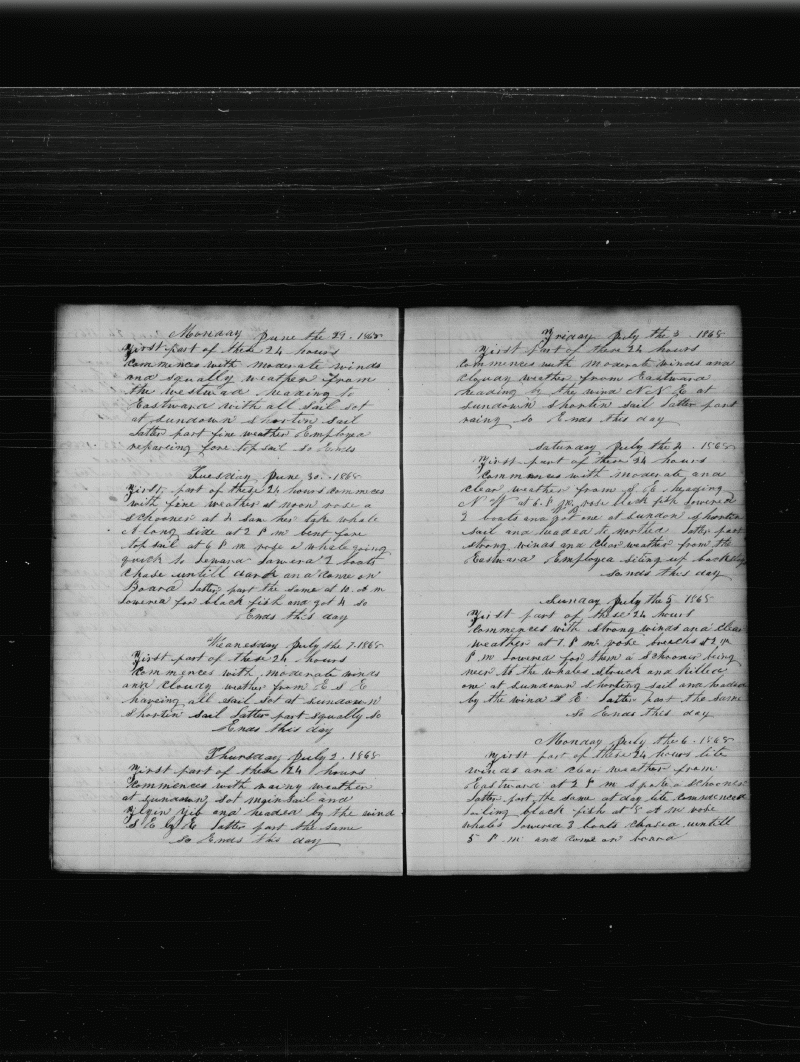 Monday June the 29. 1868
First part of these 24 hours
commences with moderate winds
and squally weather from
the westward heading to
Eastward with all sail sot
at sundown shortin sail
latter part fine weather Employed
reparcing fore topsail so Ends
Tuesday June 30. 1868
First part of these 24 hours commces
with fine weather at noon rose a
schooner at 4 saw her take whale
A long side at 2 P m bent fore
top sail at 6 P m rose a whale going
quick to leward lowerd 2 boats
chase untill dark and come on
Board latter part the same at 10. A m
lowered for black fish and got 4 so
Ends this day
Wenesday July the 1. 1868
First part of these 24 hours
commences with moderate winds
and cloudy wether from E S E
haveing all sail sot at sundown
shortin sail latter part squally so
Ends this day
Thursday July 2. 1868
First part of these 24 hours
commences with rainy weather
at sundown sot mainsail and
Flyin Jib and headed by the wind
S E by E latter part the same
so Ends this day
Friday July the 3. 1868
First part of these 24 hours
commences with moderate winds and
clyudy weather from Eastward
heading by the wind N N E at
sundown shortin sail latter part
raing so Ends this day
Saturday July the 4. 1868
First part of these 24 hours
commences with moderate and
clear weather from S E heading
N W at 6. P m rose black fish lowered
2 boats and got one at sundon shortin
sail and headed to northed latter part
strong winds and clear weather from the
Eastward Employed up
so ends this day
Sunday July the 5 1868
First part of these 24 hours
commences with strong winds and clear
weather at 1. P m rose whales at 2
P m lowered for them a schooner being
near to the whales struck and killed
one at sundown shorting sail and headed
by the wind N E latter part the same
so Ends this day
Monday July the 6. 1868
First part of these 24 hours lite
winds and clear weather from
Eastward at 2 P m spoke a schooner
latter part the same at day lite commenced
boiling black fish at 8 A m rose
whales lowered 3 boats chased untill
5 P m and come on board